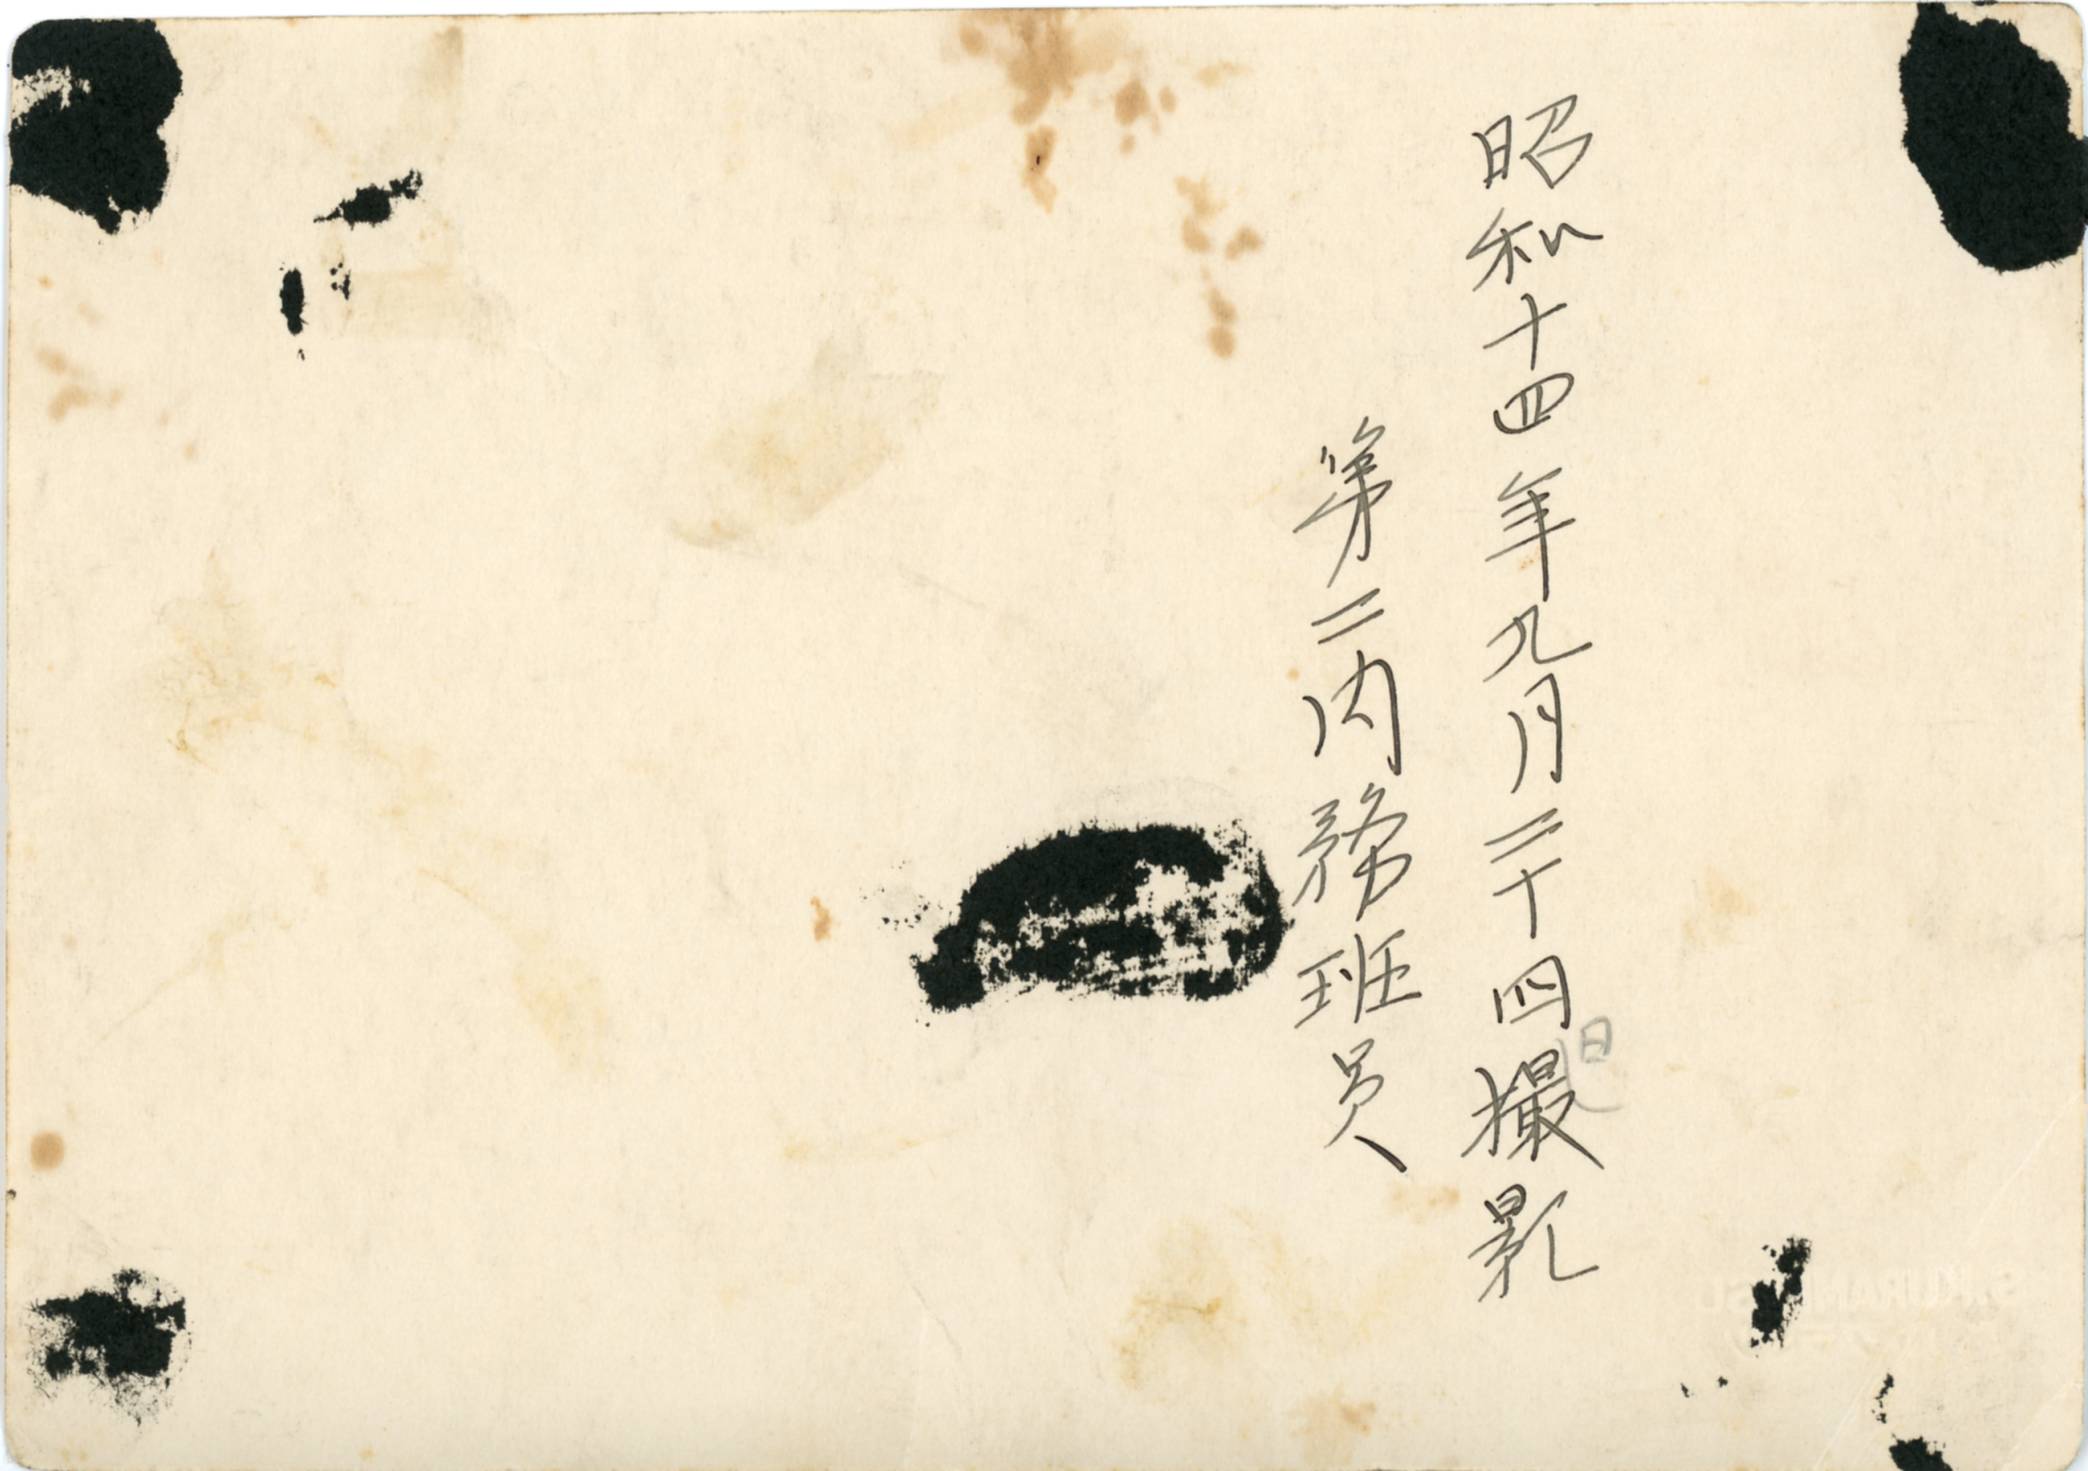 昭和十四年九月二十四日撮影
第二内務班員